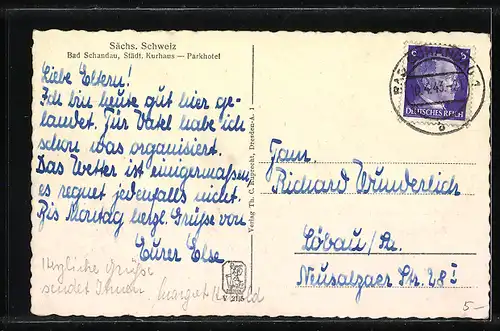 Sächs. Schweiz
Bad Schandau, Städt. Kurhaus — Parkhotel
Liebe Eltern!
Ich bin heute gut hier ge-
landet. Für Vatel habe ich
schon was organisiert.
Das Wetter ist einigermaßen,
es regnet jedenfalls nicht.
Bis Montag herzl. Grüße von
Eurer Else
Herzliche Grüße
sendet Ihnen Margot
Verlag Th. C. Ruprecht, Dresden-A. 1
DEUTSCHES REICH
Fam.
Richard Wunderlich
Löbau/Sa.
Neusalzaer Str. 28 I
5-